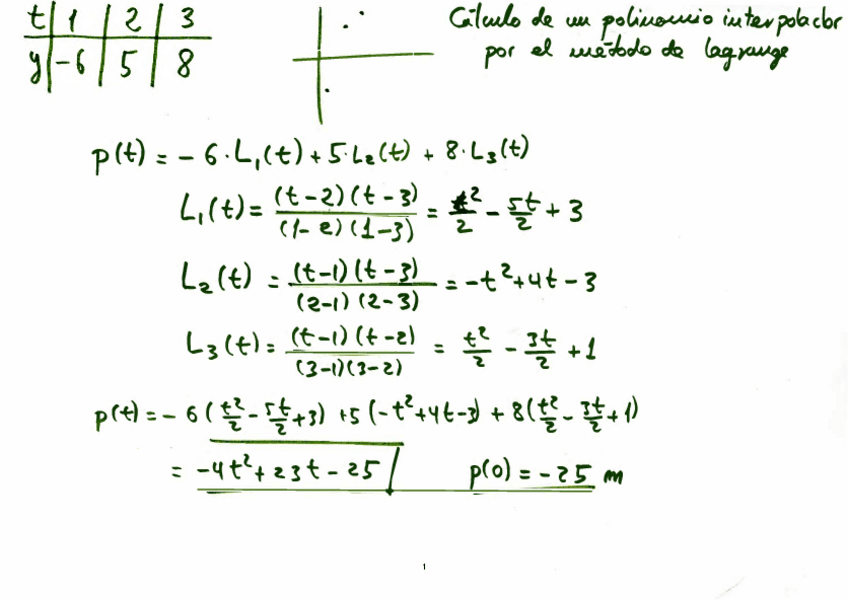 t | 1 | 2 | 3
y | -6 | 5 | 8
Cálculo de un polinomio interpolador
por el método de lagrange
p(t) = - 6·L₁(t) + 5·L₂(t) + 8·L₃(t)
L₁(t) = (t-2)(t-3) / (1-2)(1-3) = t²/2 - 5t/2 + 3
L₂(t) = (t-1)(t-3) / (2-1)(2-3) = -t²+4t-3
L₃(t) = (t-1)(t-2) / (3-1)(3-2) = t²/2 - 3t/2 + 1
p(t) = - 6(t²/2 - 5t/2 + 3) + 5(-t²+4t-3) + 8(t²/2 - 3t/2 + 1)
= -4t²+23t-25 p(0) = -25 m
1